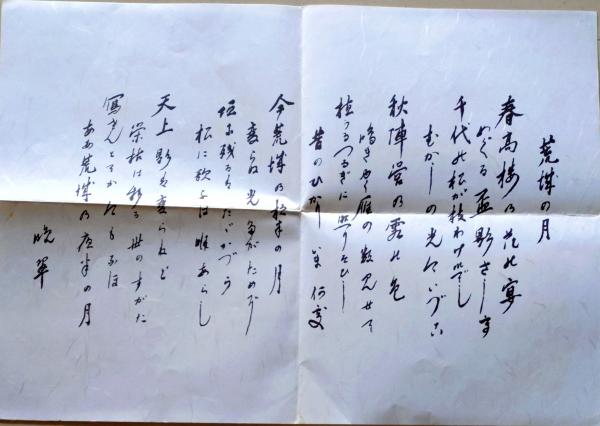 荒城の月
春高楼の花の宴
めぐる盃影さして
千代の松が枝わけ出でし
むかしの光今いづこ
秋陣営の霜の色
鳴きゆく雁の数見せて
植うるつるぎに照りそひし
昔のひかり今何處
今荒城の夜半の月
変らぬ光誰がためぞ
垣に残るはただかづら
松に歌ふは唯あらし
天上影は変らねど
栄枯は移る世のすがた
寫さんとてか今もなほ
ああ荒城の夜半の月
晩翠